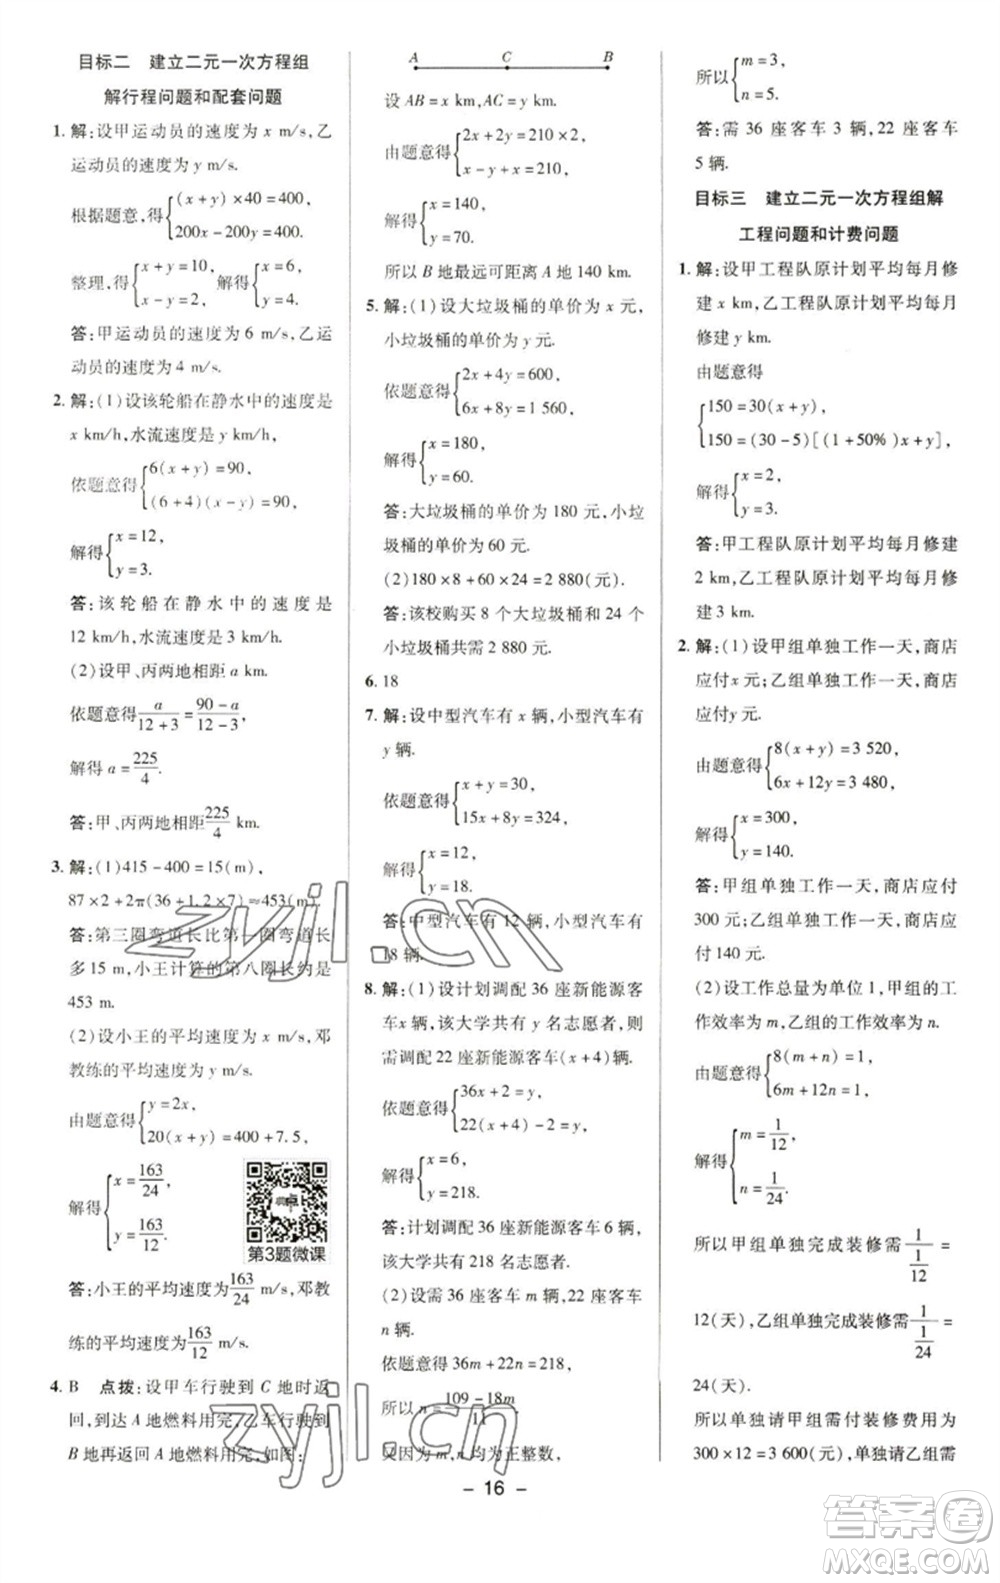 目标二　建立二元一次方程组
解行程问题和配套问题
1. 解:设甲运动员的速度为 x m/s,乙
运动员的速度为 y m/s.
根据题意,得{(x+y)×40=400,
200x-200y=400.
整理,得{x+y=10, 解得{x=6,
x-y=2. y=4.
答:甲运动员的速度为 6 m/s,乙运
动员的速度为 4 m/s.
2. 解:(1)设该轮船在静水中的速度是
x km/h,水流速度是 y km/h.
依题意得{6(x+y)=90,
(6+4)(x-y)=90,
解得{x=12,
y=3.
答:该轮船在静水中的速度是
12 km/h,水流速度是 3 km/h.
(2)设甲、丙两地相距 a km.
依题意得 a/(12+3)=(90-a)/(12-3),
解得 a=225/4.
答:甲、丙两地相距 225/4 km.
3. 解:(1)415-400=15(m),
87×2+2π(36+1.2×7)≈453(m).
答:第三圈弯道长比第一圈弯道长
多 15 m,小王计算的第八圈长约是
453 m.
(2)设小王的平均速度为 x m/s,邓
教练的平均速度为 y m/s.
由题意得{y=2x,
20(x+y)=400+7.5,
解得{x=163/24,
y=163/12.
第3题微课
答:小王的平均速度为 163/24 m/s,邓教
练的平均速度为 163/12 m/s.
4. B　点拨:设甲车行驶到 C 地时返
回,到达 A 地燃料用完,乙车行驶到
B 地再返回 A 地燃料用完,如图:
A C B
设 AB=x km,AC=y km.
由题意得{2x+2y=210×2,
x-y+x=210,
解得{x=140,
y=70.
所以 B 地最远可距离 A 地 140 km.
5. 解:(1)设大垃圾桶的单价为 x 元,
小垃圾桶的单价为 y 元.
依题意得{2x+4y=600,
6x+8y=1 560,
解得{x=180,
y=60.
答:大垃圾桶的单价为 180 元,小垃
圾桶的单价为 60 元.
(2)180×8+60×24=2 880(元).
答:该校购买 8 个大垃圾桶和 24 个
小垃圾桶共需 2 880 元.
6. 18
7. 解:设中型汽车有 x 辆,小型汽车有
y 辆.
依题意得{x+y=30,
15x+8y=324,
解得{x=12,
y=18.
答:中型汽车有 12 辆,小型汽车有
18 辆.
8. 解:(1)设计划调配 36 座新能源客
车 x 辆,该大学共有 y 名志愿者,则
需调配 22 座新能源客车(x+4)辆.
依题意得{36x+2=y,
22(x+4)-2=y,
解得{x=6,
y=218.
答:计划调配 36 座新能源客车 6 辆,
该大学共有 218 名志愿者.
(2)设需 36 座客车 m 辆,22 座客车
n 辆.
依题意得 36m+22n=218,
所以 n=(109-18m)/11.
又因为 m,n 均为正整数,
所以{m=3,
n=5.
答:需 36 座客车 3 辆,22 座客车
5 辆.
目标三　建立二元一次方程组解
工程问题和计费问题
1. 解:设甲工程队原计划平均每月修
建 x km,乙工程队原计划平均每月
修建 y km.
由题意得
{150=30(x+y),
150=(30-5)[(1+50%)x+y],
解得{x=2,
y=3.
答:甲工程队原计划平均每月修建
2 km,乙工程队原计划平均每月修
建 3 km.
2. 解:(1)设甲组单独工作一天,商店
应付 x 元;乙组单独工作一天,商店
应付 y 元.
由题意得{8(x+y)=3 520,
6x+12y=3 480,
解得{x=300,
y=140.
答:甲组单独工作一天,商店应付
300 元;乙组单独工作一天,商店应
付 140 元.
(2)设工作总量为单位 1,甲组的工
作效率为 m,乙组的工作效率为 n.
由题意得{8(m+n)=1,
6m+12n=1,
解得{m=1/12,
n=1/24.
所以甲组单独完成装修需 1/(1/12) =
12(天),乙组单独完成装修需 1/(1/24) =
24(天).
所以单独请甲组需付装修费用为
300×12=3 600(元),单独请乙组需
- 16 -
zyjl.cn
zyjl.cn
答案圈
MXQE.COM